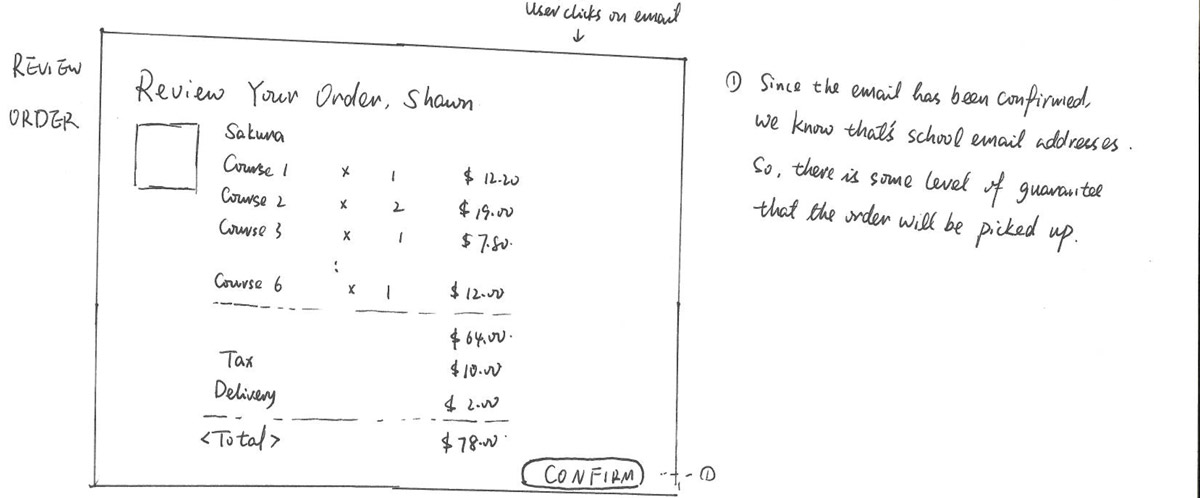 User clicks on email
REVIEW
ORDER
Review Your Order, Shawn
Sakura
Course 1 x 1 $ 12.20
Course 2 x 2 $ 19.00
Course 3 x 1 $ 7.80.
Course 6 x 1 $ 12.00
$ 64.00.
Tax $ 10.00
Delivery $ 2.00
<Total> $ 78.00
CONFIRM ①
① Since the email has been confirmed,
we know that's school email addresses.
So, there is some level of guarantee
that the order will be picked up.